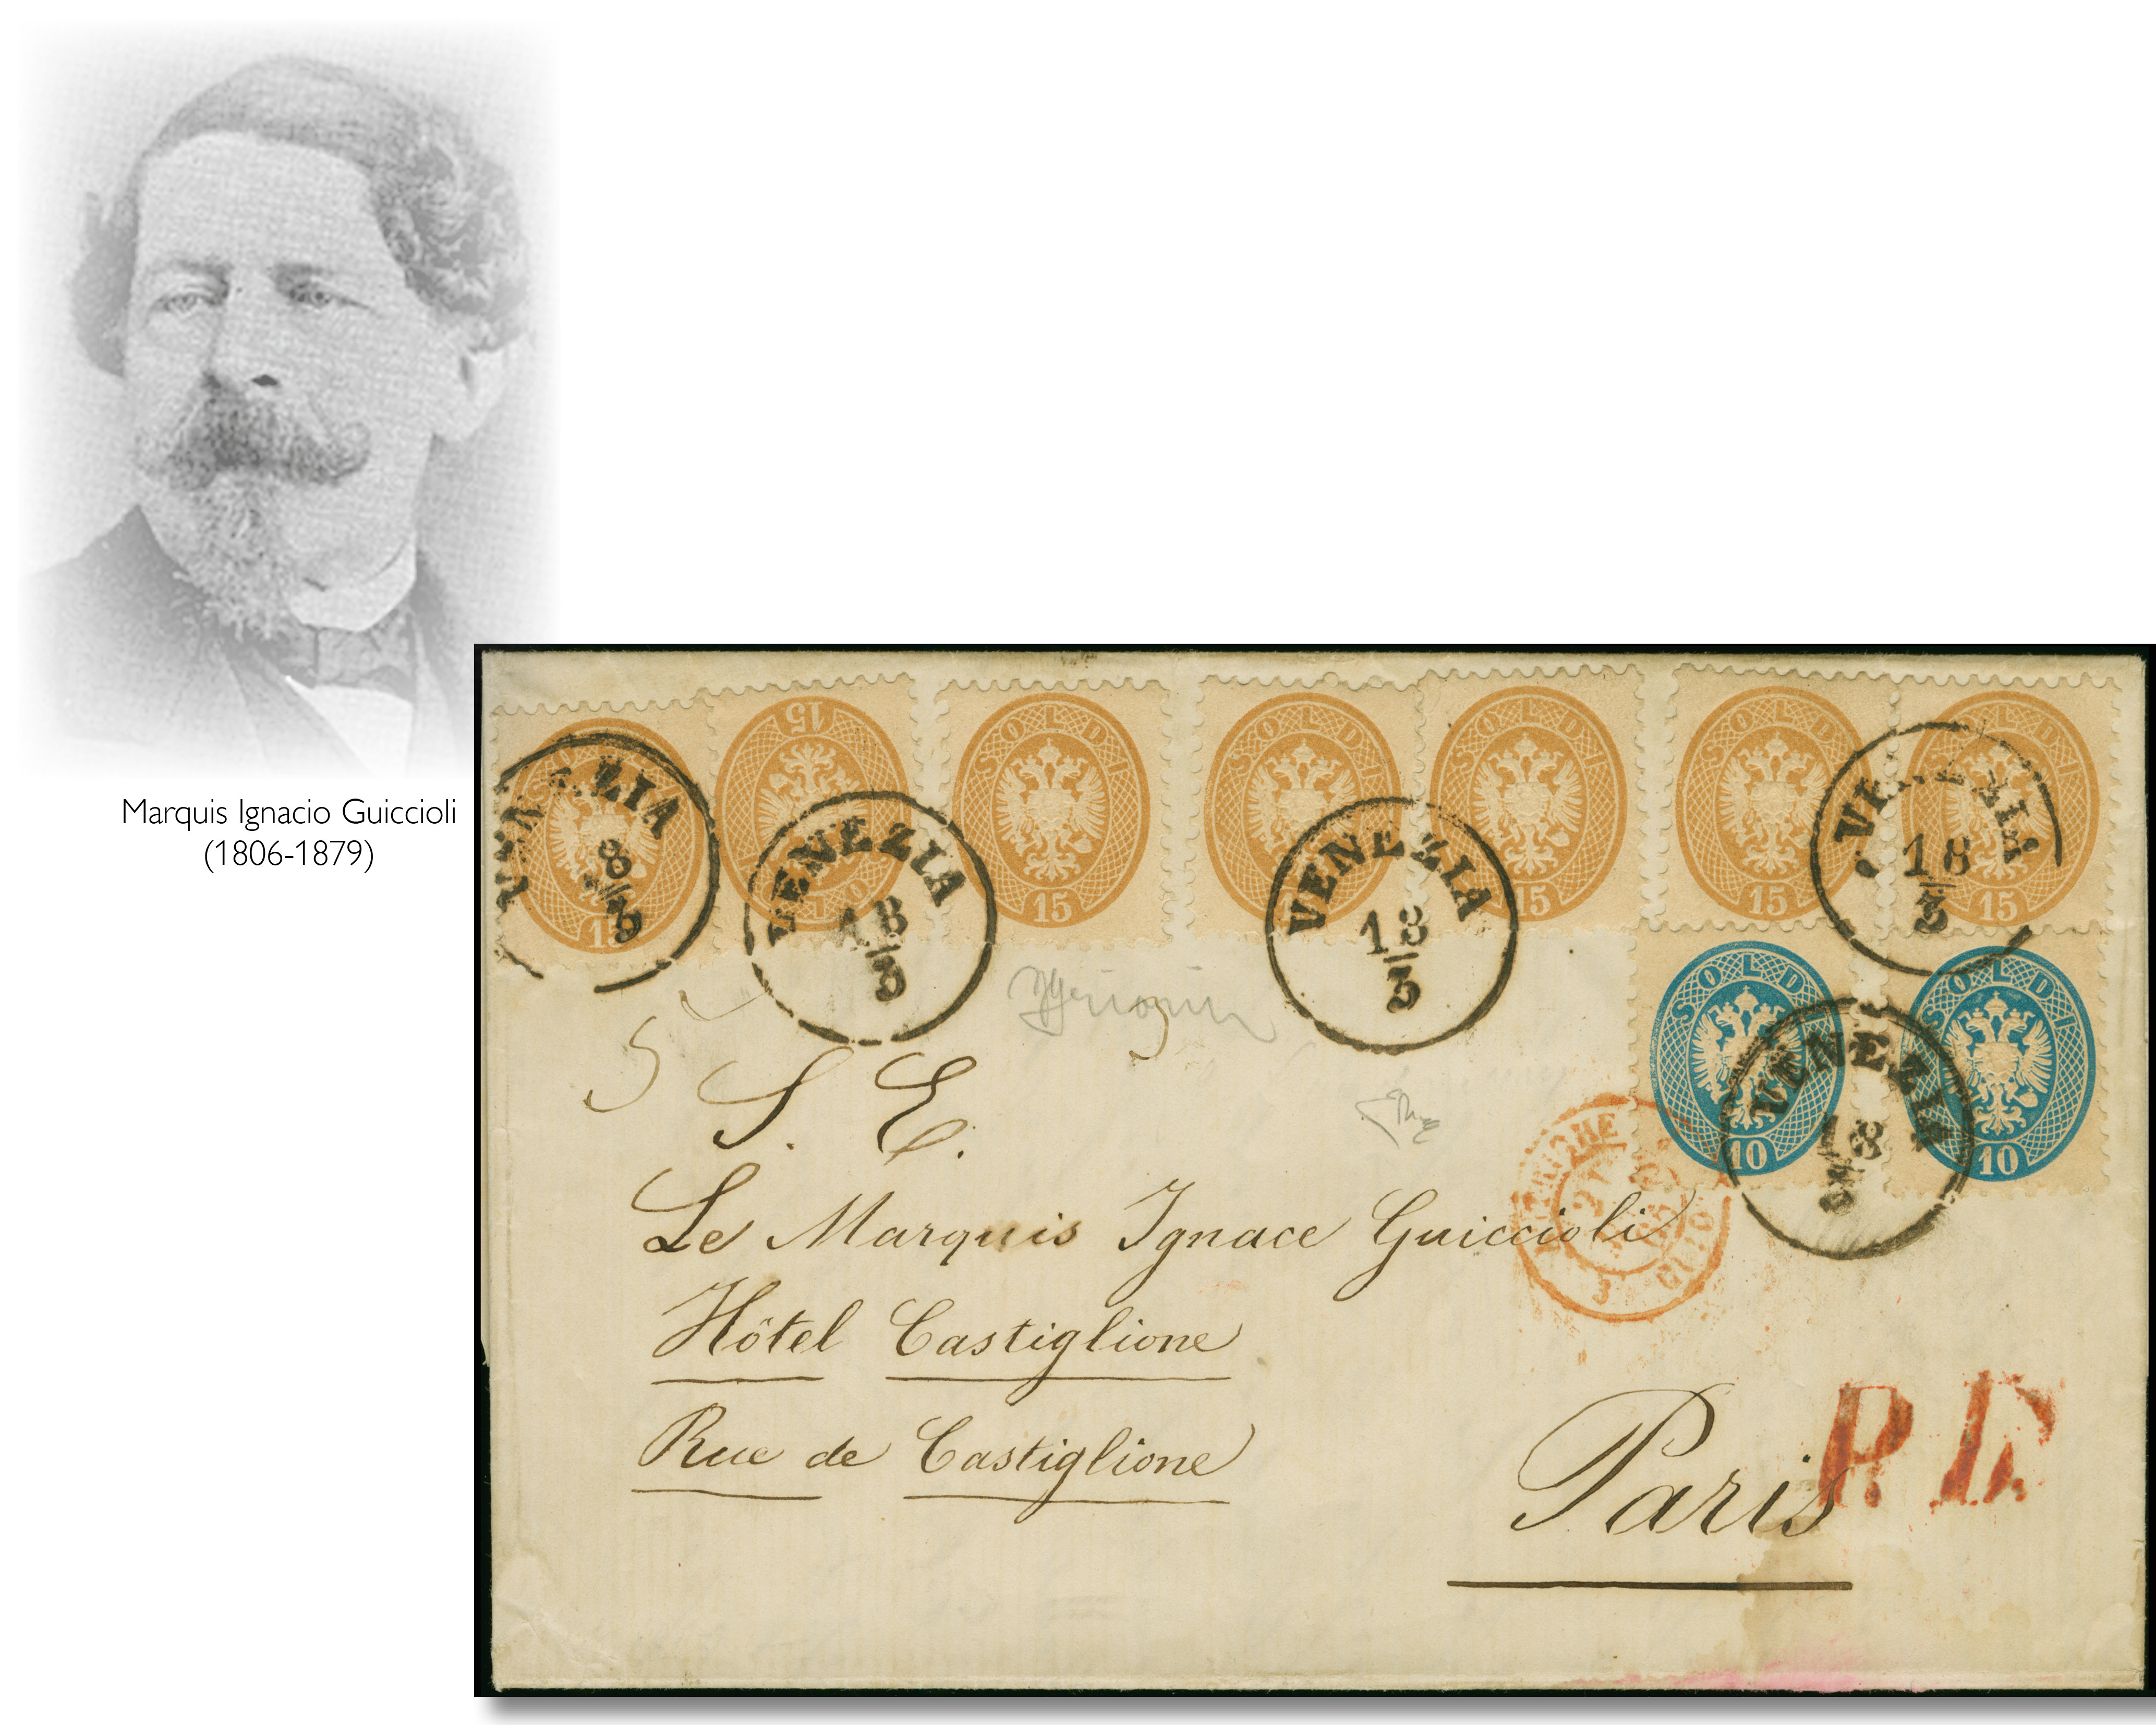 Marquis Ignacio Guiccioli
(1806-1879)
SOLDI 15
SOLDI 15
SOLDI 15
SOLDI 15
SOLDI 15
SOLDI 15
SOLDI 15
VENEZIA 18/3
VENEZIA 18/3
VENEZIA 18/3
VENEZIA 18/3
SOLDI 10
SOLDI 10
VENEZIA 18/3
5
S. E.
Le Marquis Ignace Guiccioli
Hôtel Castiglione
Rue de Castiglione
Paris
P.D.